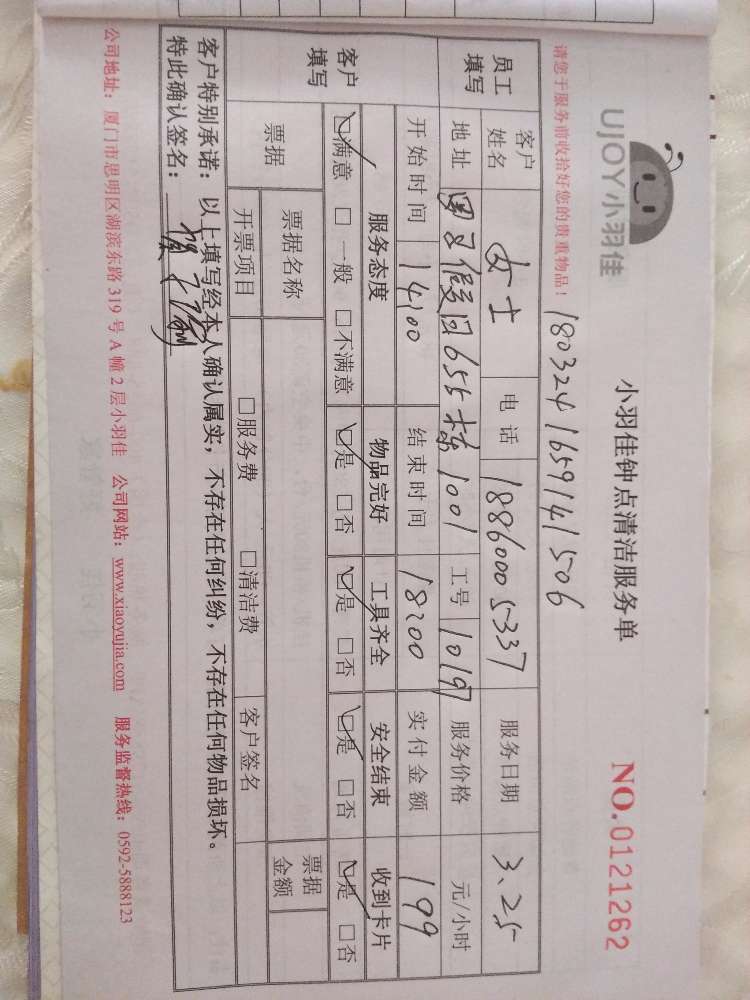 UJOY小羽佳
小羽佳钟点清洁服务单
NO.0121262
请您于服务前收拾好您的贵重物品！
180324165914150 6
员工填写
客户姓名 女士 电话 18860005337 服务日期 3.25
地址 655栋1001 工号 10197 服务价格 元/小时
开始时间 14:00 结束时间 18:00 实付金额 199
客户填写
服务态度 物品完好 工具齐全 安全结束 收到卡片
☑满意 □一般 □不满意 ☑是 □否 ☑是 □否 ☑是 □否 ☑是 □否
票据 票据名称 票据金额
开票项目 □服务费 □清洁费 客户签名
客户特别承诺：以上填写经本人确认属实，不存在任何纠纷，不存在任何物品损坏。
特此确认签名：
公司地址：厦门市思明区湖滨东路319号A幢2层小羽佳 公司网站：www.xiaoyujia.com 服务监督热线：0592-5888123